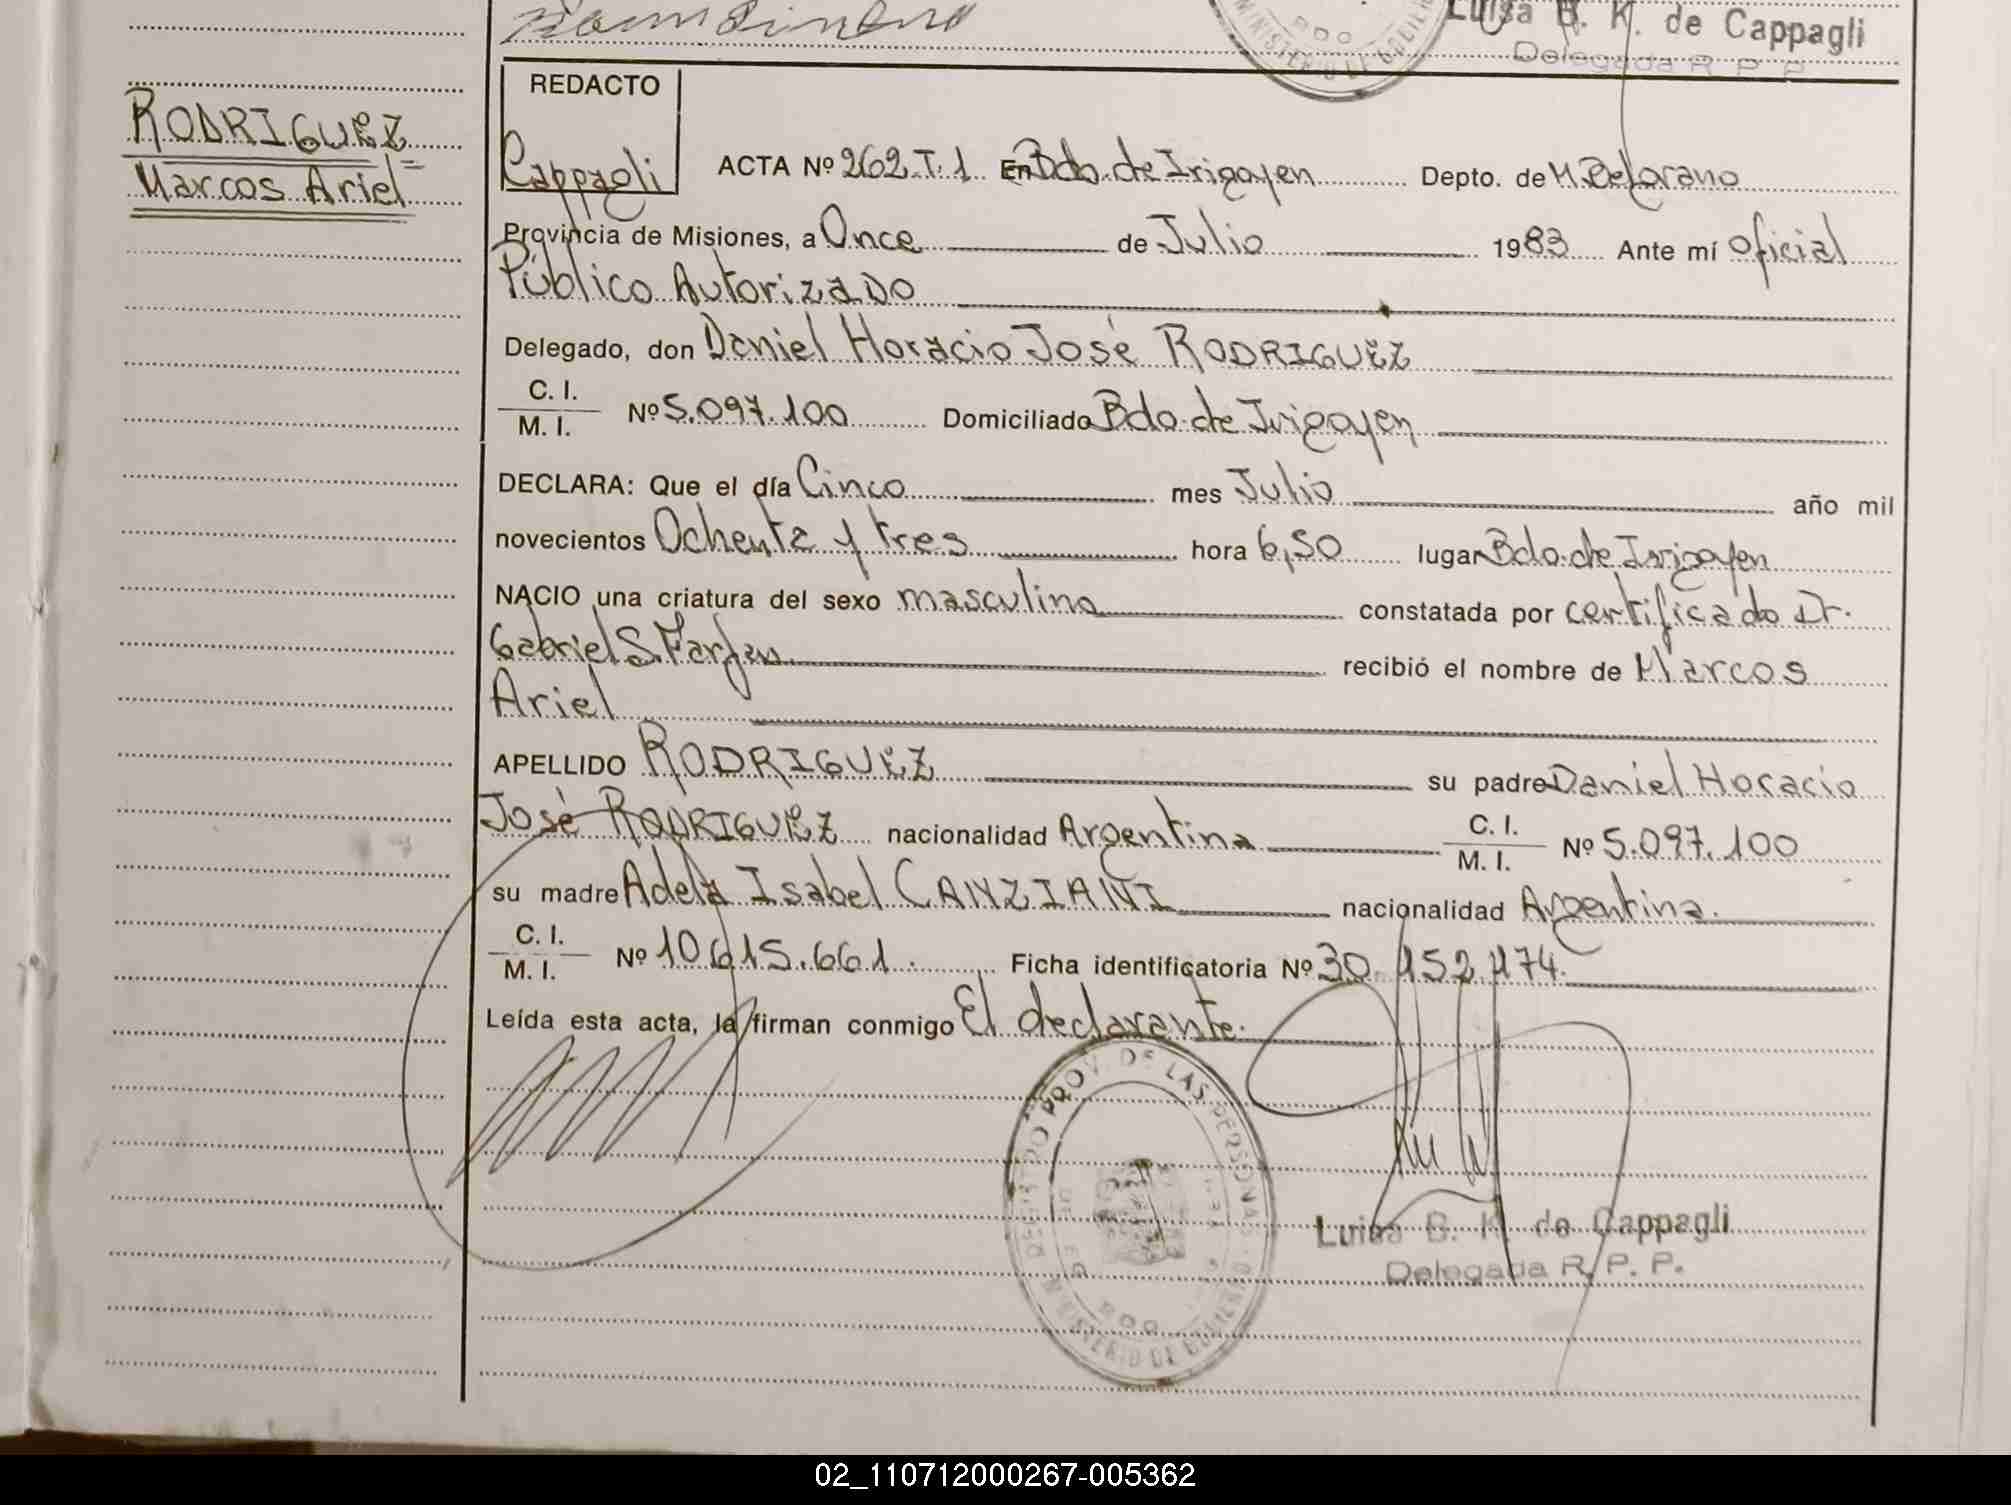 Luisa B. K. de Cappagli
Delegada R. P. P.
REDACTO
Cappagli
RODRIGUEZ
Marcos Ariel
ACTA Nº 262.T.1 En Bdo. de Irigoyen Depto. de M. Belgrano
Provincia de Misiones, a Once de Julio 1983 Ante mí Oficial
Público Autorizado
Delegado, don Daniel Horacio José RODRIGUEZ
C. I.
M. I. Nº 5.097.100 Domiciliado Bdo. de Irigoyen
DECLARA: Que el día Cinco mes Julio año mil
novecientos Ochenta y tres hora 6,50 lugar Bdo. de Irigoyen
NACIO una criatura del sexo masculino constatada por certificado Dr.
Gabriel S. Farfan recibió el nombre de Marcos
Ariel
APELLIDO RODRIGUEZ su padre Daniel Horacio
José RODRIGUEZ nacionalidad Argentina C. I. M. I. Nº 5.097.100
su madre Adela Isabel CANZIANI nacionalidad Argentina.
C. I.
M. I. Nº 10.615.661. Ficha identificatoria Nº 30.152.174.
Leída esta acta, la firman conmigo El declarante.
REGISTRO PROV. DE LAS PERSONAS
MINISTERIO DE GOBIERNO
Luisa B. K. de Cappagli
Delegada R. P. P.
02_110712000267-005362